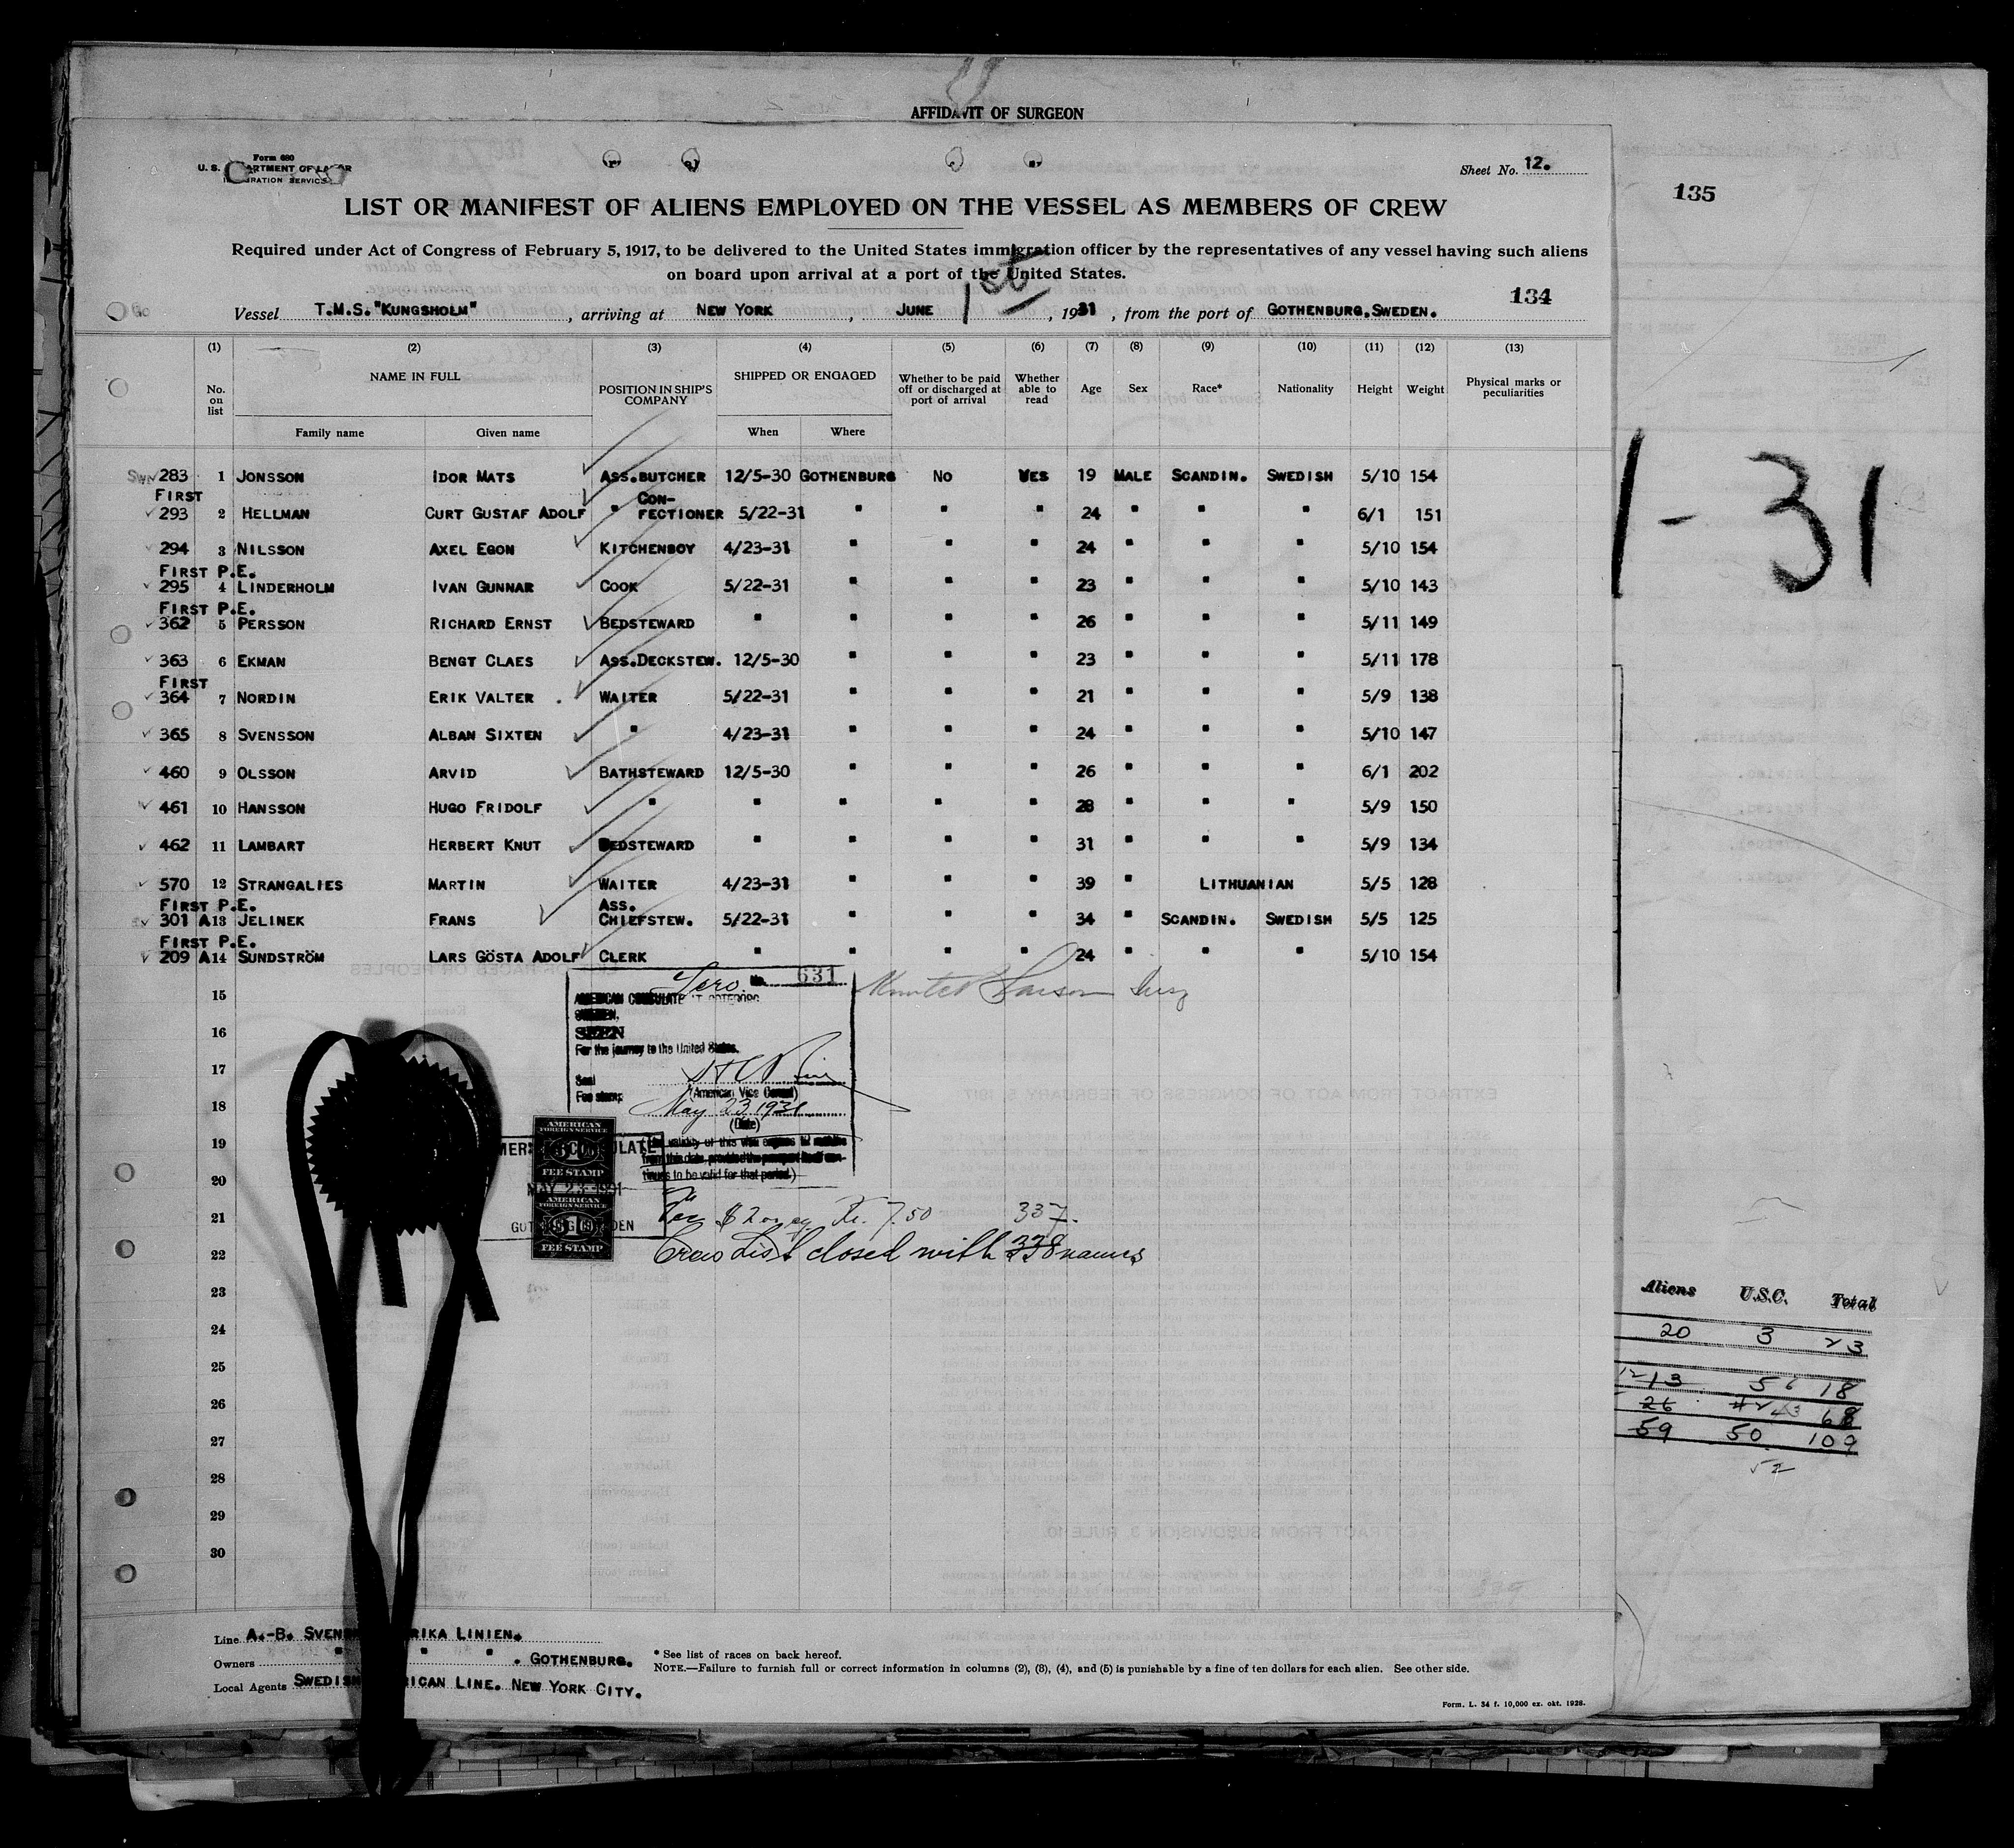 AFFIDAVIT OF SURGEON
Form 680
U. S. DEPARTMENT OF LABOR
IMMIGRATION SERVICE
Sheet No. 12.
135
LIST OR MANIFEST OF ALIENS EMPLOYED ON THE VESSEL AS MEMBERS OF CREW
Required under Act of Congress of February 5, 1917, to be delivered to the United States immigration officer by the representatives of any vessel having such aliens
on board upon arrival at a port of the United States.
134
Vessel T.M.S. "KUNGSHOLM", arriving at NEW YORK, JUNE 1st, 1931, from the port of GOTHENBURG, SWEDEN.
(1) (2) (3) (4) (5) (6) (7) (8) (9) (10) (11) (12) (13)
No. on list NAME IN FULL POSITION IN SHIP'S COMPANY SHIPPED OR ENGAGED Whether to be paid off or discharged at port of arrival Whether able to read Age Sex Race* Nationality Height Weight Physical marks or peculiarities
Family name Given name When Where
283 1 JONSSON IDOR MATS ASS.BUTCHER 12/5-30 GOTHENBURG NO YES 19 MALE SCANDIN. SWEDISH 5/10 154
FIRST CON-
293 2 HELLMAN CURT GUSTAF ADOLF " FECTIONER 5/22-31 " " " 24 " " " 6/1 151
294 3 NILSSON AXEL EGON KITCHENBOY 4/23-31 " " " 24 " " " 5/10 154
FIRST P.E.
295 4 LINDERHOLM IVAN GUNNAR COOK 5/22-31 " " " 23 " " " 5/10 143
FIRST P.E.
362 5 PERSSON RICHARD ERNST BEDSTEWARD " " " " 26 " " " 5/11 149
363 6 EKMAN BENGT CLAES ASS.DECKSTEW. 12/5-30 " " " 23 " " " 5/11 178
FIRST
364 7 NORDIN ERIK VALTER . WAITER 5/22-31 " " " 21 " " " 5/9 138
365 8 SVENSSON ALBAN SIXTEN " 4/23-31 " " " 24 " " " 5/10 147
460 9 OLSSON ARVID BATHSTEWARD 12/5-30 " " " 26 " " " 6/1 202
461 10 HANSSON HUGO FRIDOLF " " " " " 28 " " " 5/9 150
462 11 LAMBART HERBERT KNUT BEDSTEWARD " " " " 31 " " " 5/9 134
570 12 STRANGALIES MARTIN WAITER 4/23-31 " " " 39 " LITHUANIAN 5/5 128
FIRST P.E. ASS.
301 A13 JELINEK FRANS CHIEFSTEW. 5/22-31 " " " 34 " SCANDIN. SWEDISH 5/5 125
FIRST P.E.
209 A14 SUNDSTRÖM LARS GÖSTA ADOLF CLERK " " " " 24 " " " 5/10 154
15
16
17
18
19
20
21
22
23
24
25
26
27
28
29
30
No. 631
AMERICAN CONSULATE AT GOTEBORG
SWEDEN.
SEEN
For the journey to the United States.
Seal
Fee stamp
(American Vice Consul)
May 23, 1931
(Date)
(The validity of this visa expires 12 months
from this date, provided the passport itself con-
tinues to be valid for that period.)
AMERICAN FOREIGN SERVICE
FEE STAMP
MAY 23 1931
AMERICAN FOREIGN SERVICE
FEE STAMP
Fee $2 or eq. Kr. 7.50
337.
Crew List closed with 338 names
1-31
Aliens U.S.C. Total
20 3 23
12 13 5 6 18
26 42 43 68
59 50 109
52
Line A.-B. SVENSKA AMERIKA LINIEN.
Owners " " " . GOTHENBURG.
Local Agents SWEDISH AMERICAN LINE. NEW YORK CITY.
* See list of races on back hereof.
NOTE.—Failure to furnish full or correct information in columns (2), (3), (4), and (5) is punishable by a fine of ten dollars for each alien. See other side.
Form. L. 34 f. 10,000 ex. okt. 1928.